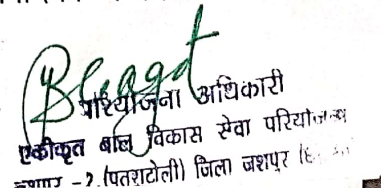 Bhagat
परियोजना अधिकारी
एकीकृत बाल विकास सेवा परियोजना
जशपुर -2 (पतराटोली) जिला जशपुर